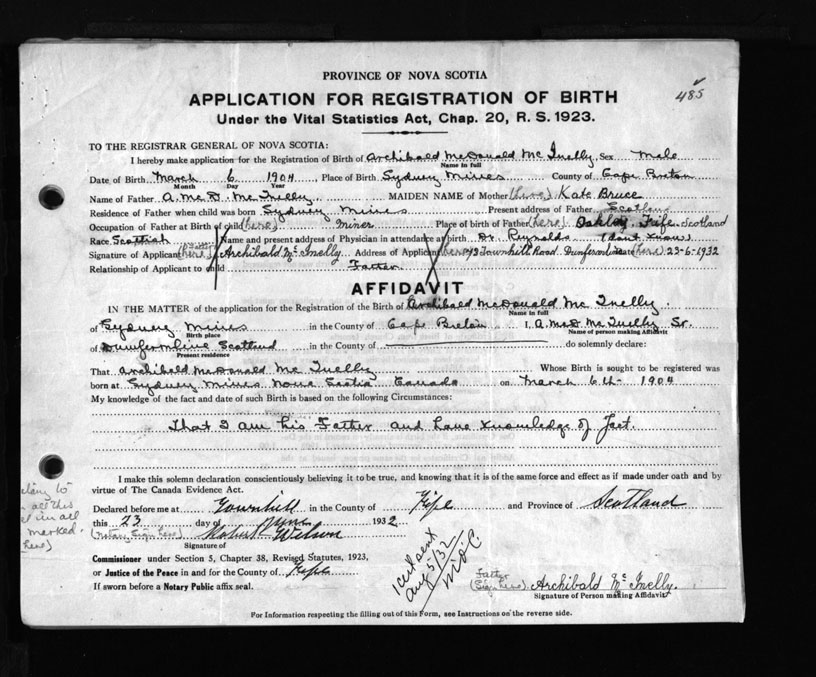 485
PROVINCE OF NOVA SCOTIA
APPLICATION FOR REGISTRATION OF BIRTH
Under the Vital Statistics Act, Chap. 20, R. S. 1923.
TO THE REGISTRAR GENERAL OF NOVA SCOTIA:
I hereby make application for the Registration of Birth of Archibald McDonald Mc Inelly Sex Male
Name in full
Date of Birth March 6 1904 Place of Birth Sydney Mines County of Cape Breton
Month Day Year
Name of Father A. McD. Mc Inelly MAIDEN NAME of Mother (here) Kate Bruce
Residence of Father when child was born Sydney Mines Present address of Father Scotland
Occupation of Father at Birth of child (here) Miner Place of birth of Father (here) Oakley Fife Scotland
Race Scottish Name and present address of Physician in attendance at birth Dr. Reynolds (dont know)
Signature of Applicant (here) Archibald Mc Inelly Address of Applicant (here) Townhill Road Dunfermline (here) 23-6-1932
Relationship of Applicant to child Father
AFFIDAVIT
IN THE MATTER of the application for the Registration of the Birth of Archibald McDonald Mc Inelly
Name in full
of Sydney Mines in the County of Cape Breton I, A. McD Mc Inelly Sr.
Birth place Name of person making Affidavit
of Dunfermline Scotland in the County of do solemnly declare:
Present residence
That Archibald McDonald Mc Inelly Whose Birth is sought to be registered was
born at Sydney Mines Nova Scotia Canada on March 6th 1904
My knowledge of the fact and date of such Birth is based on the following Circumstances:
That I am his Father and have knowledge of fact.
I make this solemn declaration conscientiously believing it to be true, and knowing that it is of the same force and effect as if made under oath and by
virtue of The Canada Evidence Act.
Declared before me at Townhill in the County of Fife and Province of Scotland
this 23 day of June 1932
(Notary Sign here) Robert Wilson
Signature of
Commissioner under Section 5, Chapter 38, Revised Statutes, 1923,
or Justice of the Peace in and for the County of Fife
If sworn before a Notary Public affix seal.
1 Cert sent
Aug 5/32
Father
(Sign here) Archibald Mc Inelly.
Signature of Person making Affidavit
For Information respecting the filling out of this Form, see Instructions on the reverse side.